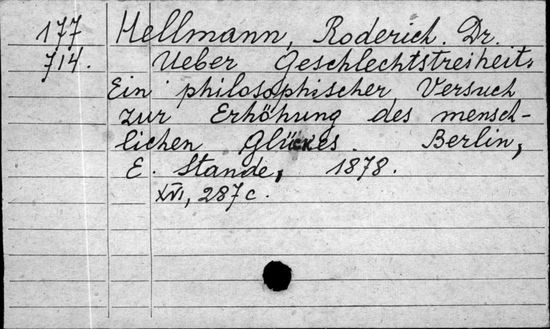 177 Hellmann, Roderich. Dr.
714. Ueber Geschlechtsfreiheit.
Ein philosophischer Versuch
zur Erhöhung des mensch-
lichen Glückes. Berlin,
E. Stande, 1878.
XVI, 287 c.